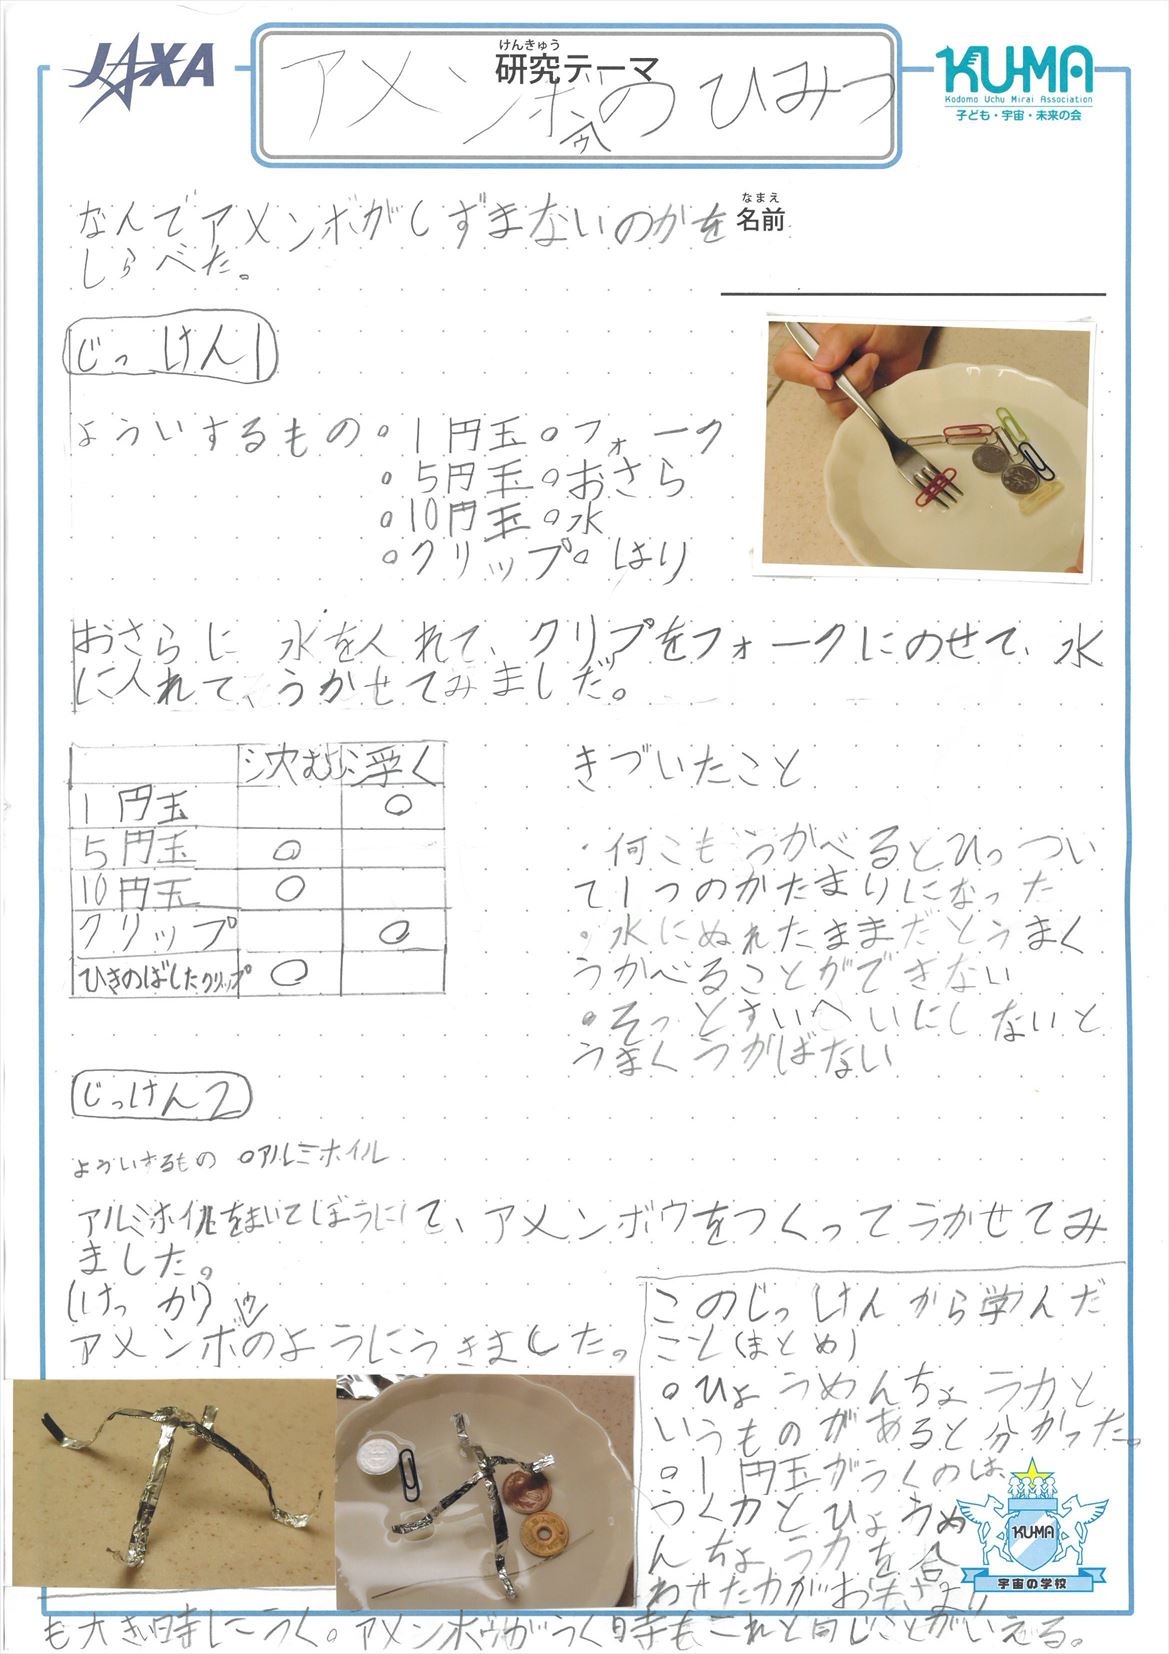 JAXA
けんきゅう
研究テーマ
アメンボのひみつ
ウ
KU-MA
Kodomo Uchu Mirai Association
子ども・宇宙・未来の会
なまえ
名前
なんでアメンボがしずまないのかを
しらべた。
じっけん1
よういするもの○1円玉○フォーク
○5円玉○おさら
○10円玉○水
○クリップ○はり
おさらに水を入れて、クリプをフォークにのせて、水
に入れて、うかせてみましだ。
沈む 浮く
1円玉 ○
5円玉 ○
10円玉 ○
クリップ ○
ひきのばしたクリップ ○
きづいたこと
・何こもうかべるとひっつい
て1つのかたまりになった
○水にぬれたままだとうまく
うかべることができない
○そっとすいへいにしないと
うまくうかばない
じっけん2
よういするもの ○アルミホイル
アルミホイルをまいてぼうにして、アメンボウをつくってうかせてみ
ました。
(けっか)
ウ
アメンボのようにうきました。
このじっけんから学んだ
こと(まとめ)
○ひょうめんちょうカと
いうものがあると分かった。
○1円玉がうくのは、
うく力とひょうめ
んちょうカを合
わせた力がおもさより
も大きい時にうく。アメンボウがうく時もこれと同じことがいえる。
KUMA
宇宙の学校